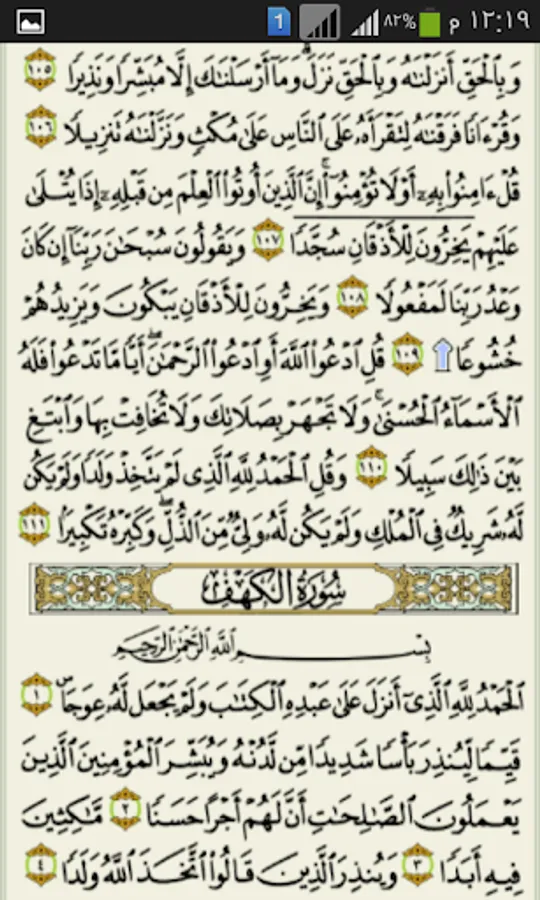 ١٢:١٩ م ٨٢% 1
وَبِالْحَقِّ أَنزَلْنَٰهُ وَبِالْحَقِّ نَزَلَ ۗ وَمَآ أَرْسَلْنَٰكَ إِلَّا مُبَشِّرًا وَنَذِيرًا ١٠٥
وَقُرْءَانًا فَرَقْنَٰهُ لِتَقْرَأَهُۥ عَلَى النَّاسِ عَلَىٰ مُكْثٍ وَنَزَّلْنَٰهُ تَنزِيلًا ١٠٦
قُلْ ءَامِنُوا۟ بِهِۦٓ أَوْ لَا تُؤْمِنُوٓا۟ ۚ إِنَّ الَّذِينَ أُوتُوا۟ الْعِلْمَ مِن قَبْلِهِۦٓ إِذَا يُتْلَىٰ
عَلَيْهِمْ يَخِرُّونَ لِلْأَذْقَانِ سُجَّدًا ١٠٧ وَيَقُولُونَ سُبْحَٰنَ رَبِّنَآ إِن كَانَ
وَعْدُ رَبِّنَا لَمَفْعُولًا ١٠٨ وَيَخِرُّونَ لِلْأَذْقَانِ يَبْكُونَ وَيَزِيدُهُمْ
خُشُوعًا ١٠٩ قُلِ ادْعُوا۟ اللَّهَ أَوِ ادْعُوا۟ الرَّحْمَٰنَ ۖ أَيًّا مَّا تَدْعُوا۟ فَلَهُ
الْأَسْمَآءُ الْحُسْنَىٰ ۚ وَلَا تَجْهَرْ بِصَلَاتِكَ وَلَا تُخَافِتْ بِهَا وَابْتَغِ
بَيْنَ ذَٰلِكَ سَبِيلًا ١١٠ وَقُلِ الْحَمْدُ لِلَّهِ الَّذِى لَمْ يَتَّخِذْ وَلَدًا وَلَمْ يَكُن
لَّهُۥ شَرِيكٌ فِى الْمُلْكِ وَلَمْ يَكُن لَّهُۥ وَلِىٌّ مِّنَ الذُّلِّ ۖ وَكَبِّرْهُ تَكْبِيرًۢا ١١١
سُورَةُ الْكَهْفِ
بِسْمِ اللَّهِ الرَّحْمَٰنِ الرَّحِيمِ
الْحَمْدُ لِلَّهِ الَّذِىٓ أَنزَلَ عَلَىٰ عَبْدِهِ الْكِتَٰبَ وَلَمْ يَجْعَل لَّهُۥ عِوَجَاۜ ١
قَيِّمًا لِّيُنذِرَ بَأْسًا شَدِيدًا مِّن لَّدُنْهُ وَيُبَشِّرَ الْمُؤْمِنِينَ الَّذِينَ
يَعْمَلُونَ الصَّٰلِحَٰتِ أَنَّ لَهُمْ أَجْرًا حَسَنًا ٢ مَّٰكِثِينَ
فِيهِ أَبَدًا ٣ وَيُنذِرَ الَّذِينَ قَالُوا۟ اتَّخَذَ اللَّهُ وَلَدًا ٤